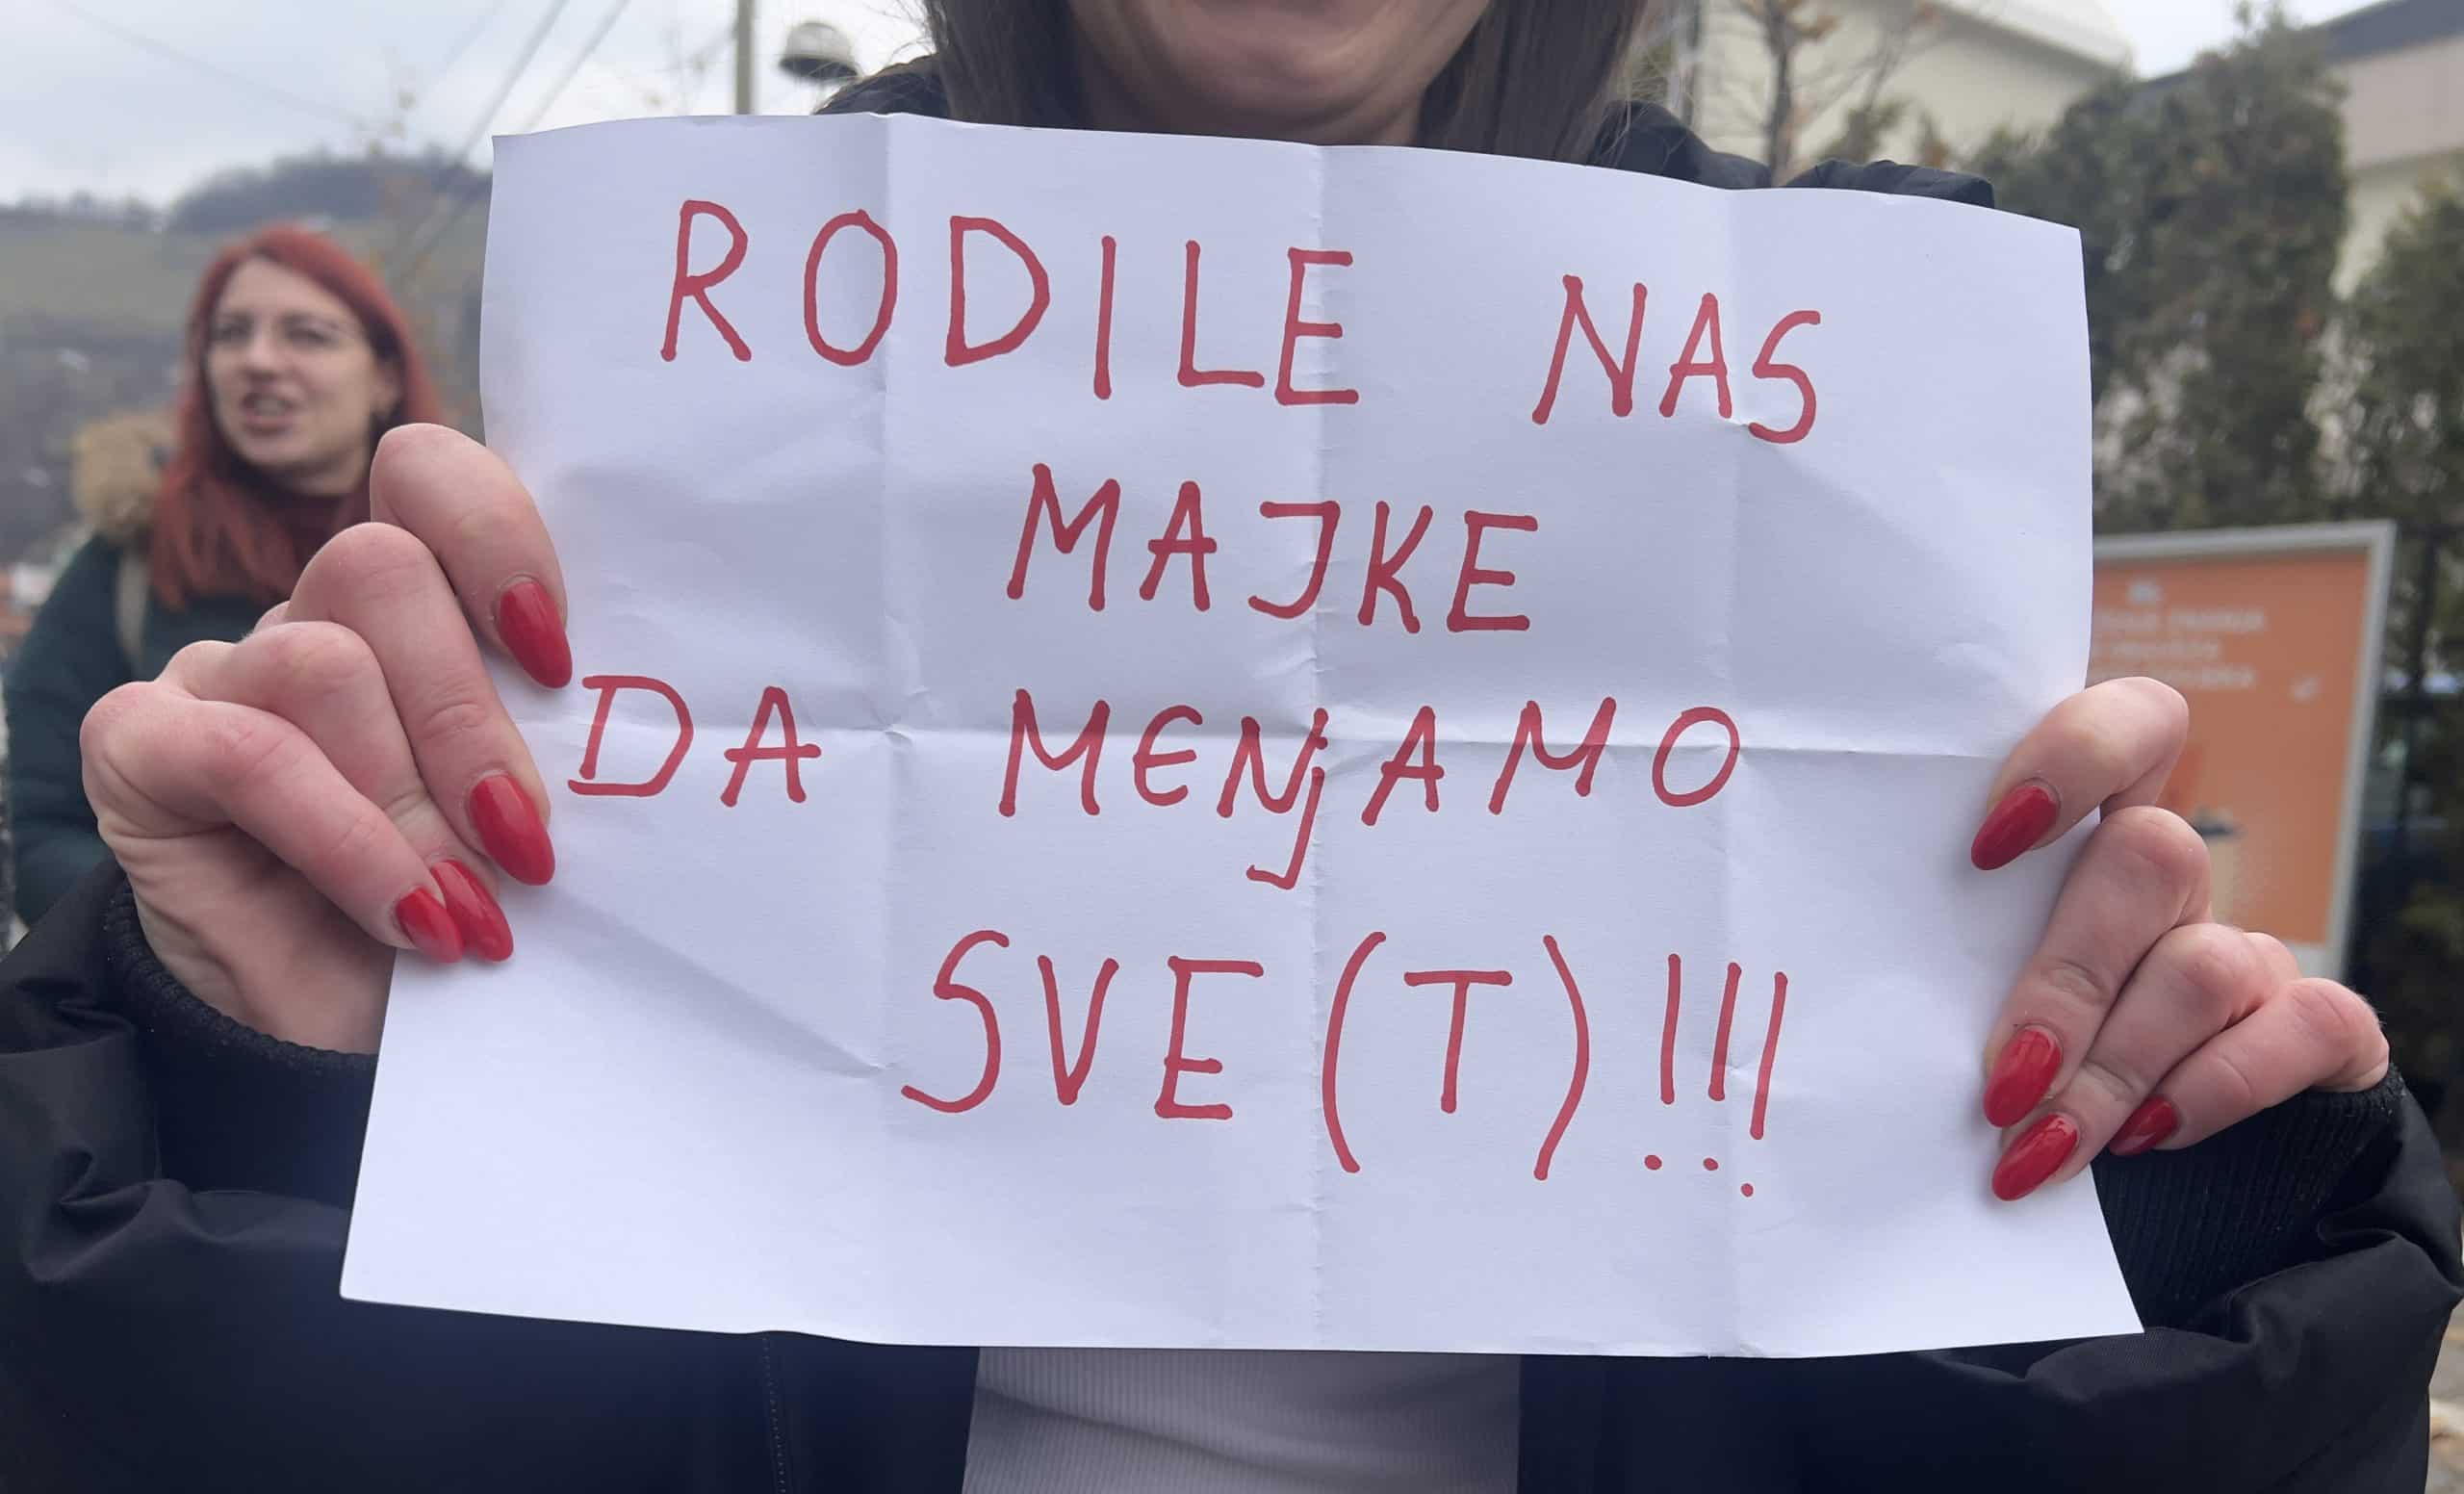 RODILE NAS
MAJKE
DA MENjAMO
SVE(T)!!!